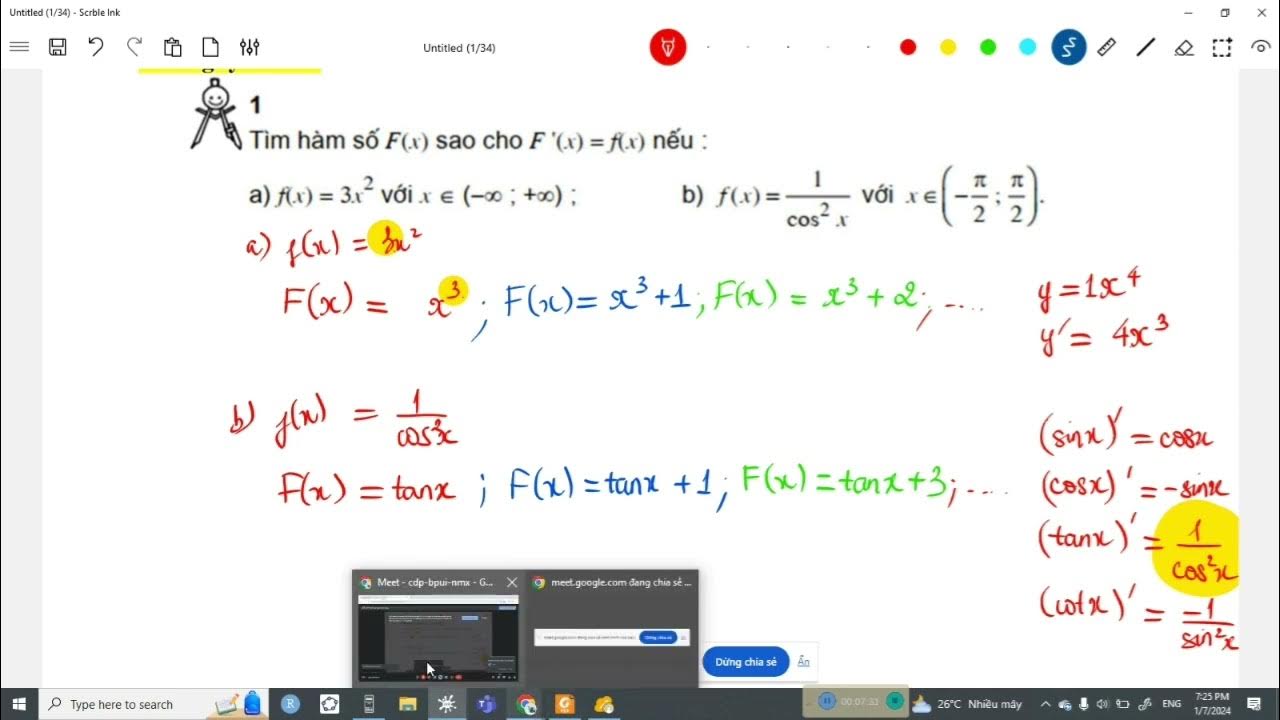 Untitled (1/34) - Scrble Ink
Untitled (1/34)
1
Tìm hàm số F(x) sao cho F '(x) = f(x) nếu :
a) f(x) = 3x² với x ∈ (−∞ ; +∞) ; b) f(x) = 1/cos² x với x ∈ (−π/2 ; π/2).
a) f(x) = 3x²
F(x) = x³ ; F(x) = x³ + 1 ; F(x) = x³ + 2 ; ....
y = 1x⁴
y' = 4x³
b) f(x) = 1/cos²x
F(x) = tanx ; F(x) = tanx + 1 ; F(x) = tanx + 3 ; ....
(sinx)' = cosx
(cosx)' = -sinx
(tanx)' = 1/cos²x
(cotx)' = -1/sin²x
Meet - cdp-bpui-nmx - G...
meet.google.com đang chia sẻ ...
Dừng chia sẻ
Dừng chia sẻ Ẩn
Type here to search
00:07:31
26°C Nhiều mây
ENG
7:25 PM
1/7/2024